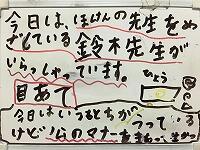 今日は、ほけんの先生をめ
ざしている鈴木先生が
いらっしゃっています。
目あて
ひょう
今日はいうもとちが
っている
けど
のマナーをまもって